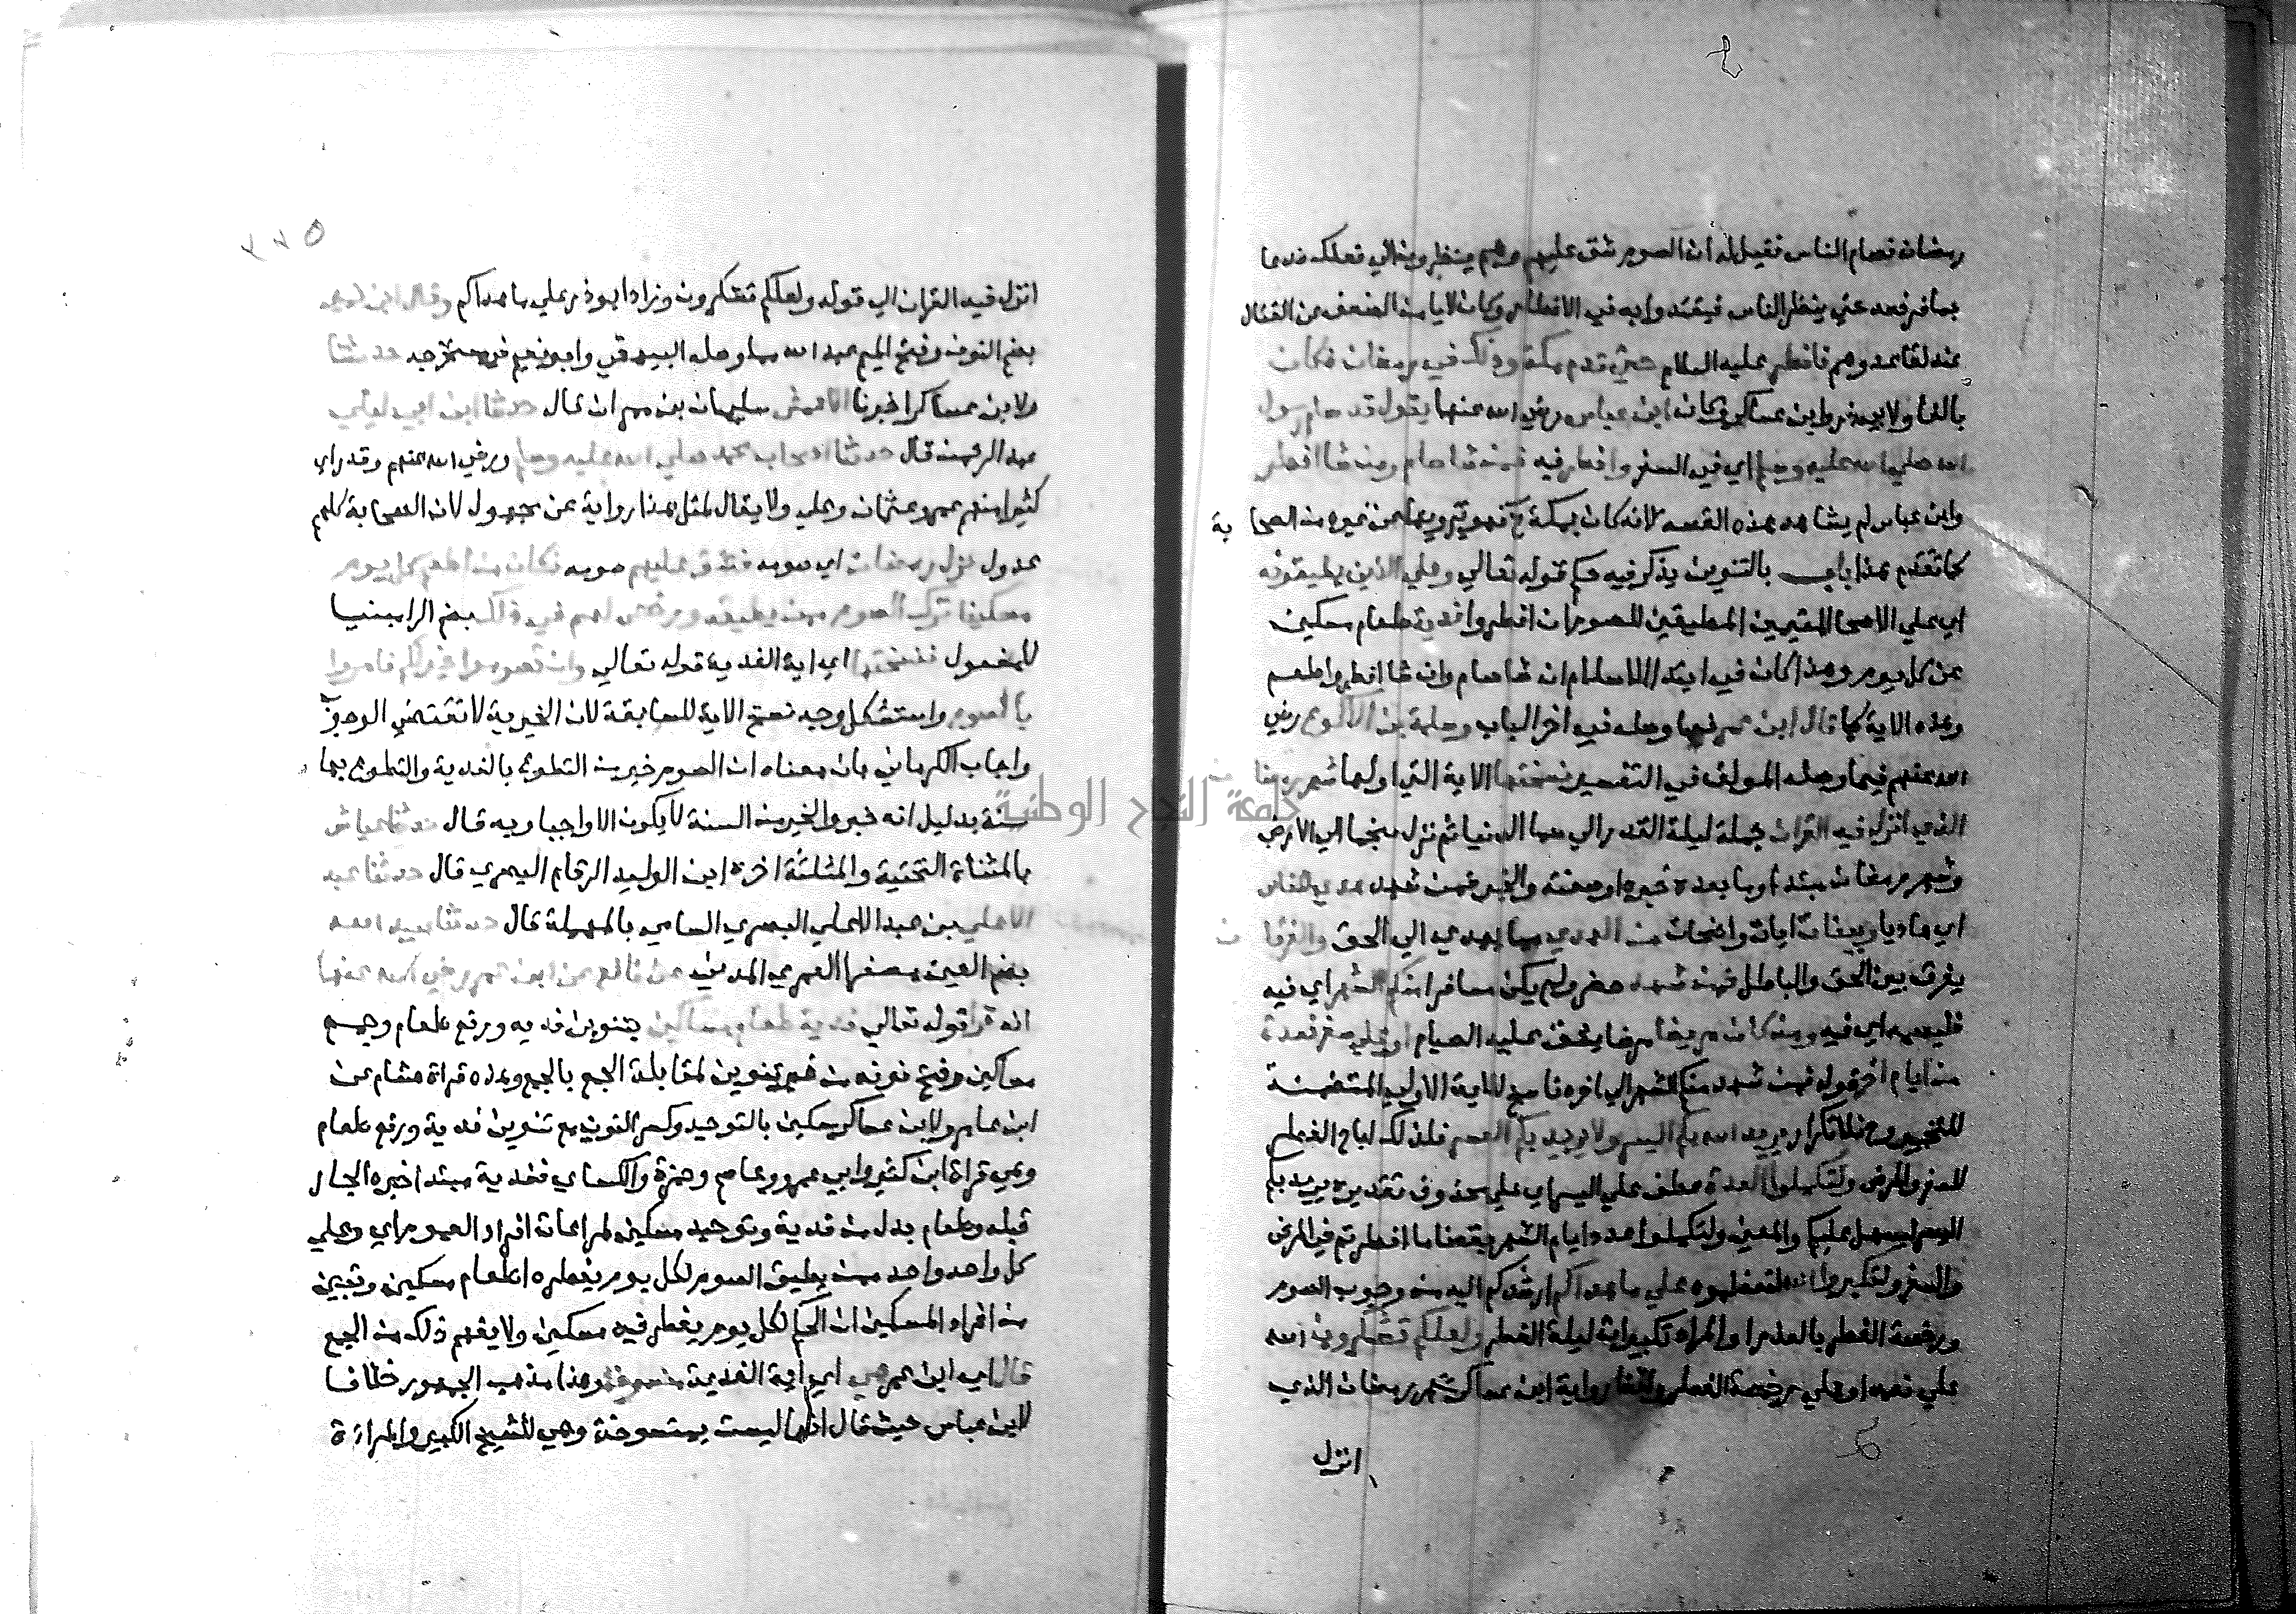 رمضان فصام الناس فقيل له ان الصوم شق عليهم وانهم ينظرون الي فعلك فدعا
بماء فرفعه حتي ينظر الناس فيقتدوا به في الافطار وكان لا يامن الضعف عن القتال
عند لقا عدوهم فافطر عليه السلام حتي قدم مكة وذلك في رمضان فكان
بالفا ولابي ذر وابن عساكر وكان ابن عباس رضي الله عنهما يقول قد صام رسول
الله صلي الله عليه وسلم اي في السفر وافطر فيه فمن شا صام ومن شا افطر
وابن عباس لم يشاهد هذه القصه لانه كان بمكة ح فهو يرويها عن غيره من الصحابة
كما تقدم هذا باب بالتنوين يذكر فيه حكم قوله تعالي وعلي الذين يطيقونه
اي علي الاصحا المقيمين المطيقين للصوم ان افطروا فدية طعام مسكين
عن كل يوم وهذا كان في ابتدا الاسلام ان شا صام وان شا افطر واطعم
وهذه الاية كما قال ابن عمر فيما وصله في اخر الباب وسلمة بن الاكوع رضي
الله عنهم فيما وصله المولف في التفسير نسختها الاية التي اولها شهر رمضان
الذي انزل فيه القران جملة ليلة القدر الي سما الدنيا ثم نزل منجما الي الارض
وشهر رمضان مبتدا وما بعده خبره او صفته والخبر فمن شهد هدي للناس
اي هاديا وبينات ايات واضحات من الهدي مما يهدي الي الحق والفرقان
يفرق بين الحق والباطل فمن شهد حضر ولم يكن مسافرا منكم الشهر اي فيه
فليصمه اي فيه ومن كان مريضا مرضا يشق عليه الصيام او علي سفر فعدة
من ايام اخر قوله فمن شهد منكم الشهر الي اخره ناسخ للاية الاولي المتضمنة
للتخيير وح فلا تكرار يريد الله بكم اليسر ولا يريد بكم العسر فلذلك اباح الفطر
للسفر والمرض ولتكملوا العدة عطف علي اليسر او علي محذوف تقديره يريد بكم
اليسر ليسهل عليكم والمعني ولتكملوا عدد ايام الشهر بقضا ما افطرتم في المرض
والسفر ولتكبروا الله لتعظموه علي ما هداكم ارشدكم اليه من وجوب الصوم
ورخصة الفطر بالعذر او المراد تكبيرات ليلة الفطر ولعلكم تشكرون الله
علي نعمه او علي رخصة الفطر ولفظ رواية ابن عساكر شهر رمضان الذي
انزل
٢٢٥
انزل فيه القران الي قوله ولعلكم تشكرون وزاد ابو ذر علي ما هداكم وقال ابن نمير
بضم النون وفتح الميم عبد الله مما وصله البيهقي وابو نعيم في مستخرجه حدثنا
ولابن عساكر اخبرنا الاعمش سليمان بن مهران قال حدثنا ابن ابي ليلي
عبد الرحمن قال حدثنا اصحاب محمد صلي الله عليه وسلم ورضي الله عنهم وقد راي
كثيرا منهم عمر وعثمان وعلي ولا يقال لمثل هذا رواية عن مجهول لان الصحابة كلهم
عدول نزل رمضان اي صومه فشق عليهم صومه فكان من اطعم كل يوم
مسكينا ترك الصوم ممن يطيقه ورخص لهم في ذلك بضم الرا مبنيا
للمفعول فنسختها اي اية الفدية قوله تعالي وان تصوموا خير لكم فامروا
بالصوم واستشكل وجه نسخ الاية للسابقة لان الخيرية لا تقتضي الوجوب
واجاب الكرماني بان معناه ان الصوم خير من التطوع بالفدية والتطوع بها
سنة بدليل انه خير والخير من السنة لا يكون الا واجبا وبه قال حدثنا عياش
بالمثناة التحتية والمثلثة اخره ابن الوليد الرقام البصري قال حدثنا عبد
الاعلي بن عبد الاعلي البصري السامي بالمهملة قال حدثنا عبيد الله
بضم العين مصغرا العمري المدني عن نافع عن ابن عمر رضي الله عنهما
انه قرا قوله تعالي فدية طعام مساكين بتنوين فديه ورفع طعام وجمع
مساكين وفتح نونه من غير تنوين لمقابلة الجمع بالجمع وهذه قراة هشام عن
ابن عامر ولابن عساكر مسكين بالتوحيد وكسر النون مع تنوين فدية ورفع طعام
وهي قراة ابن كثير وابي عمرو وعاصم وحمزة والكساي ففدية مبتدا خبره الجار
قبله وطعام بدل من فدية وتوحيد مسكين لمراعات افراد العموم اي وعلي
كل واحد واحد ممن يطيق الصوم لكل يوم يفطره اطعام مسكين وتبين
من افراد المسكين ان الحكم لكل يوم يفطر فيه مسكين ولا يفهم ذلك من الجمع
قال اي ابن عمر هي اي اية الفدية منسوخة وهذا مذهب الجمهور خلافا
لابن عباس حيث قال انها ليست بمنسوخة وهي للشيخ الكبير والمراة
جامعة النجاح الوطنية